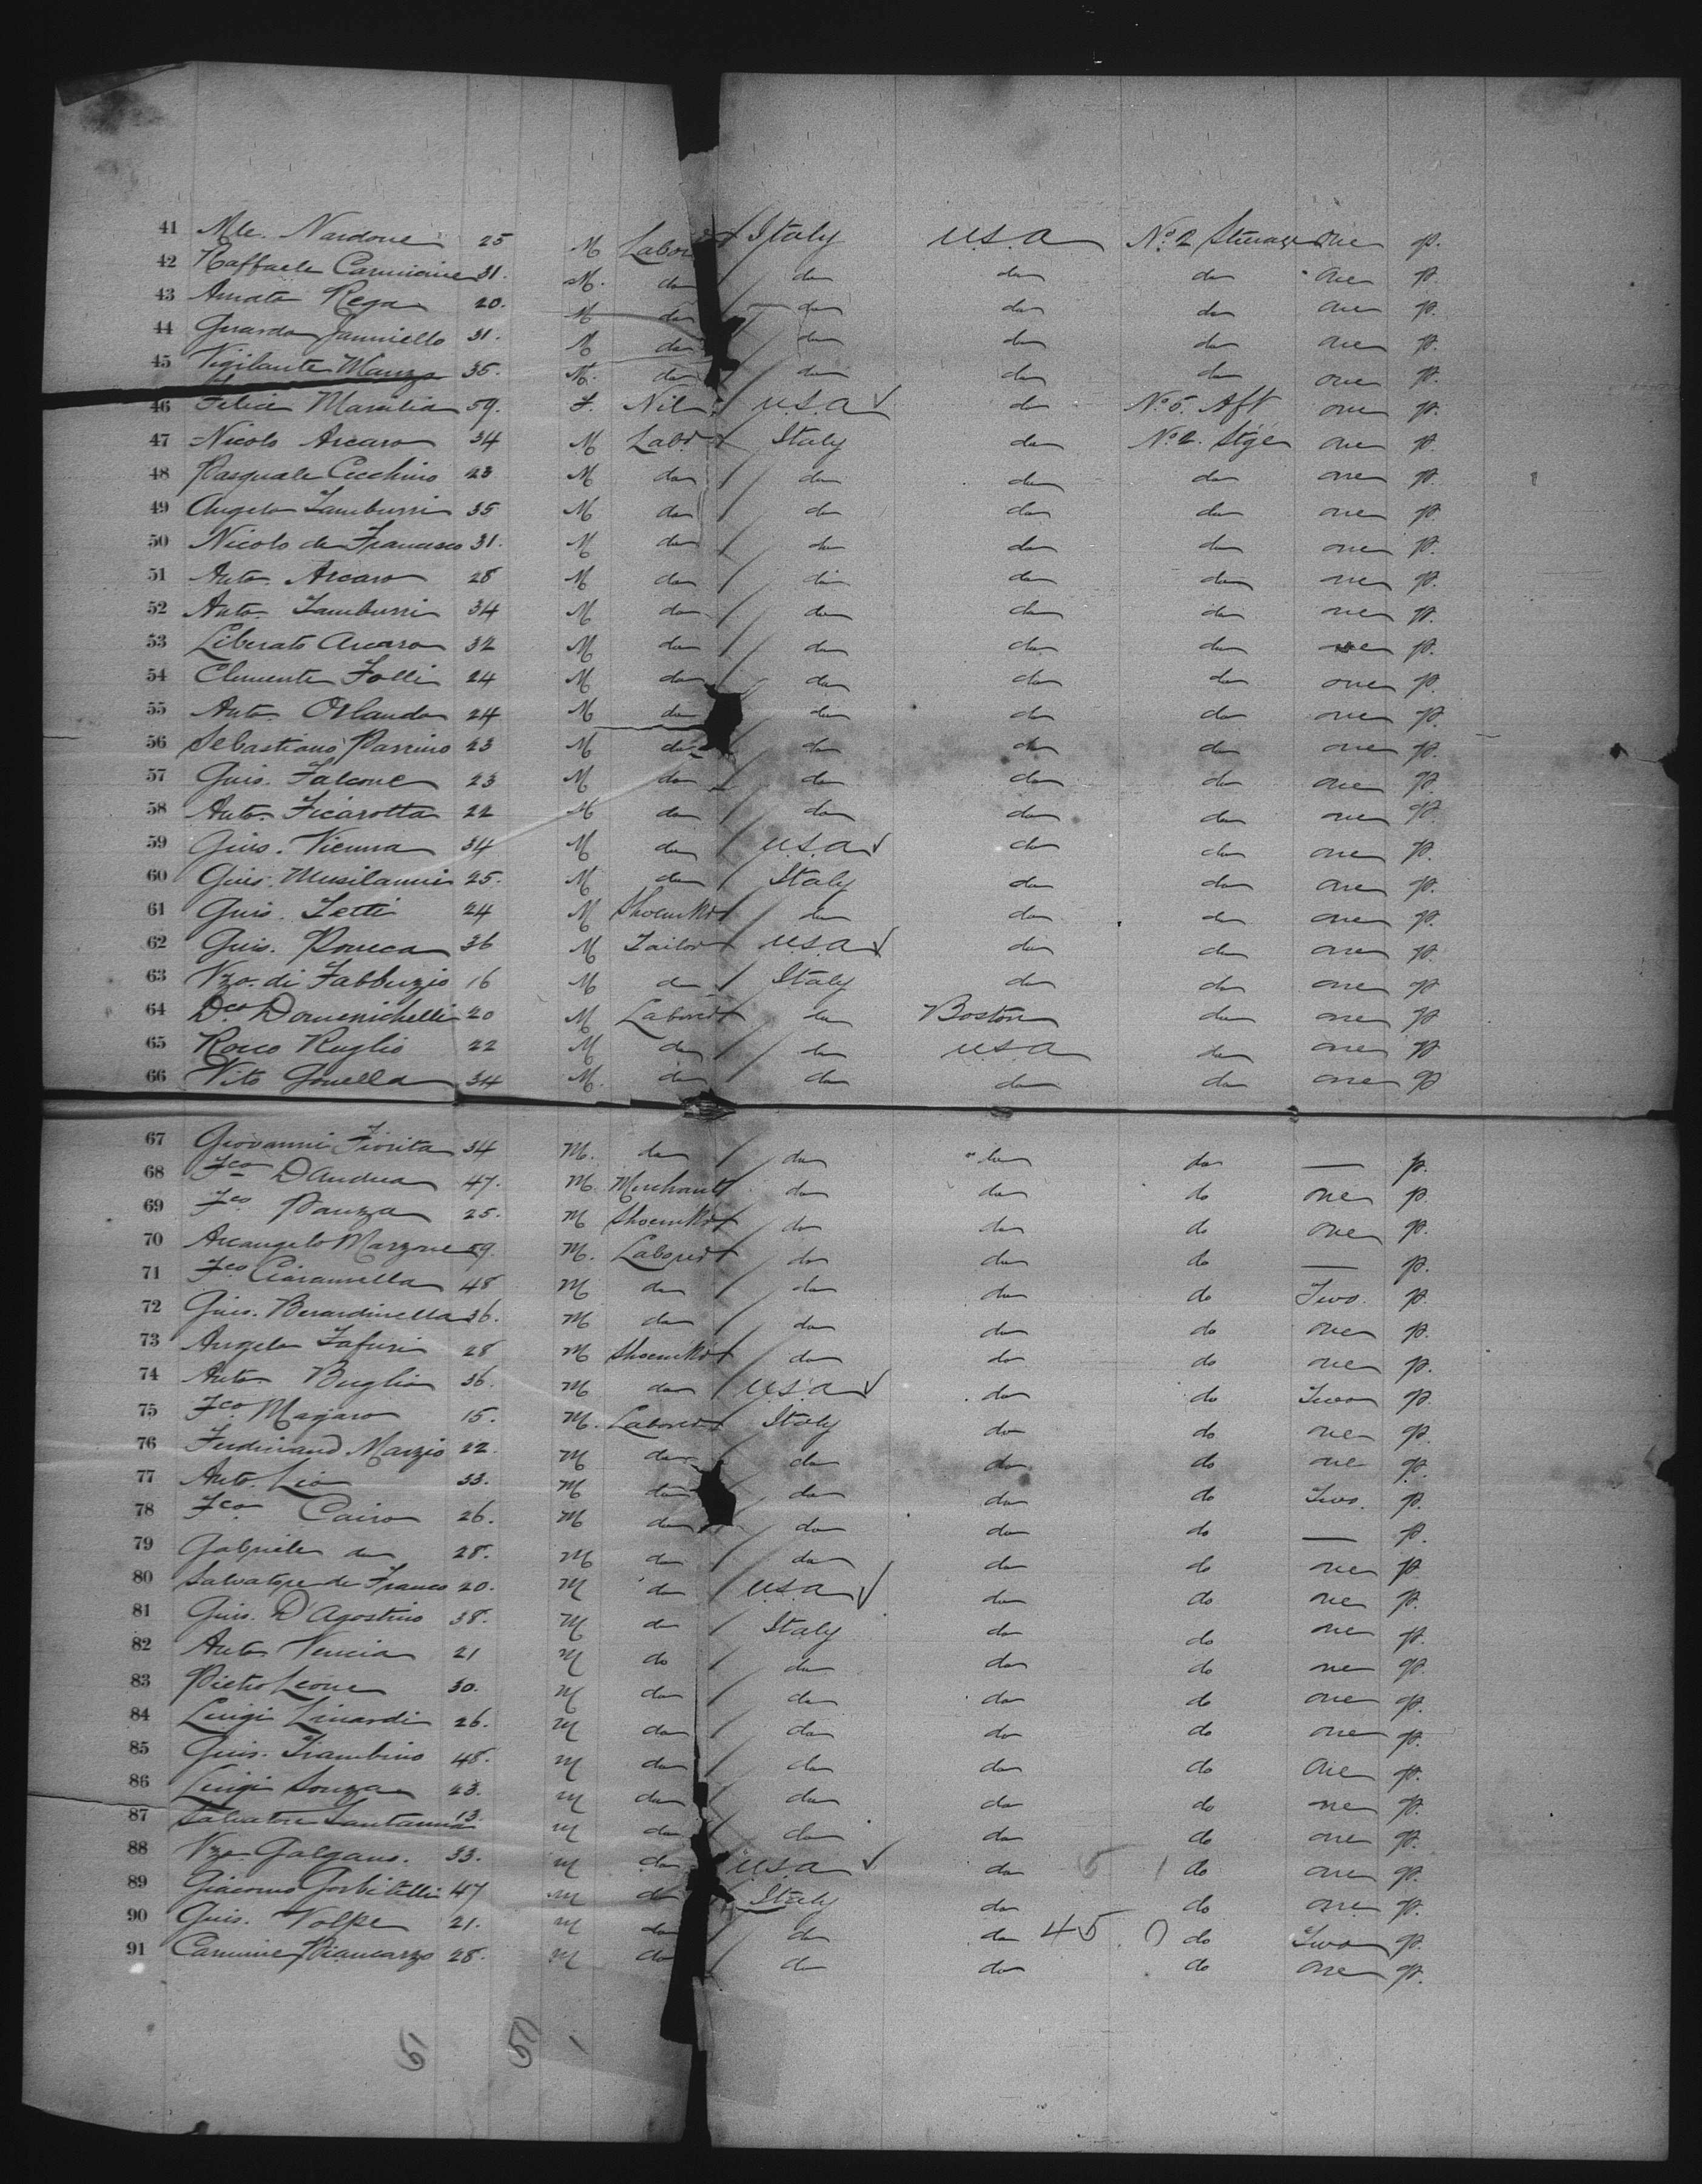 41 Mle. Nardone 25 M Labor / Italy U.S.A No. 2 Steerage One p.
42 Raffaele Carmine 31. M. do / do do do One p.
43 Amato Rega 20. M do / do do do One p.
44 Gerardo Janniello 31. M do / do do do One p.
45 Vigilante Manzo 35. M. do / do do do one p.
46 Felicia 59. F. Nil / U.S.A √ do No. 5. Aft one p.
47 Nicolo Arcaro 34 M Labr / Italy do No. 2. Stge One p.
48 Pasquale Cecchino 23 M do / do do do one p.
49 Angelo Tamburri 35 M do / do do do one p.
50 Nicolo de Francesco 31. M do / do do do one p.
51 Anto. Arcaro 28 M do / do do do one p.
52 Anto. Tamburri 34 M do / do do do one p.
53 Liberato Arcaro 32 M do / do do do one p.
54 Clemente Folli 24 M do / do do do one p.
55 Anto. Orlando 24 M do / do do do one p.
56 Sebastiano Parrino 23 M do / do do do one p.
57 Guis. Falcone 23 M do / do do do one p.
58 Anto. Ficarotta 22 M do / do do do one p.
59 Guis. Vienna 34 M do / U.S.A √ do do one p.
60 Guis. 25. M do / Italy do do one p.
61 Guis. Tetti 24 M ShoemKr / do do do one p.
62 Guis. 36 M Tailor / U.S.A √ do do one p.
63 Vzo. di Fabbrizio 16 M do / Italy do do one p
64 Dco Domenichelli 20 M Laborer / do Boston do one p
65 Rocco Ruglio 22 M do / do U.S.A do one p
66 Vito Gonella 34 M. do / do do do one p
67 Giovanni Fiorita 34 M. do / do do do — p.
68 Fco D'Andrea 47. M. Merchant / do do do one p.
69 Fco Panza 25. M ShoemKr / do do do one p.
70 Arcangelo Marzone 59. M. Laborer / do do do — p.
71 Fco Ciaramella 48 M do / do do do Two. p.
72 Guis. Berardinella 36. M do / do do do one p.
73 Angelo Tafuri 28 M ShoemKr / do do do one p.
74 Anto. Buglio 36. M do / U.S.A √ do do Two p.
75 Fco Majaro 15. M. Laborer / Italy do do one p.
76 Ferdinand Marzio 22. M do / do do do one p.
77 Anto. Lio 33. M do / do do do Two. p.
78 Fco Cairo 26. M do / do do do — p.
79 Gabriele do 28. M do / do do do one p.
80 Salvatore de Franco 20. M do / U.S.A √ do do one p.
81 Guis. D'Agostino 38. M do / Italy do do one p.
82 Anto 21 M do / do do do one p.
83 Pietro Leone 30. M do / do do do one p.
84 Luigi Linardi 26. M do / do do do one p.
85 Guis. 48. M do / do do do One p.
86 Luigi Souza 23. M do / do do do one p.
87 Salvatore Santanna 13. M do / do do do one p.
88 Vzo Galgano. 33. M do / U.S.A √ do 5 1 do one p.
89 Giacomo 47 M do / Italy do do one p.
90 Guis. Volpe 21. M do / do do 45 0 do Two p.
91 Carmine Piancarzo 28. M do / do do do one p.
51 50 1